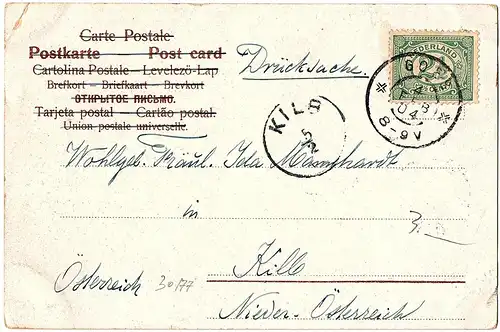 Carte Postale
Postkarte Post card
Cartolina Postale – Levelező-Lap
Brefkort – Briefkaart – Brevkort
ОТКРЫТОЕ ПИСЬМО.
Tarjeta postal – Cartão postal.
Union postale universelle.
Drücksache.
NEDERLAND
GO
4 FEB 04
8-9V
KILB
5/2
Wohlgeb. Fräul. Ida
in
3.
Kilb
Österreich 30/77
Nieder-Österreich